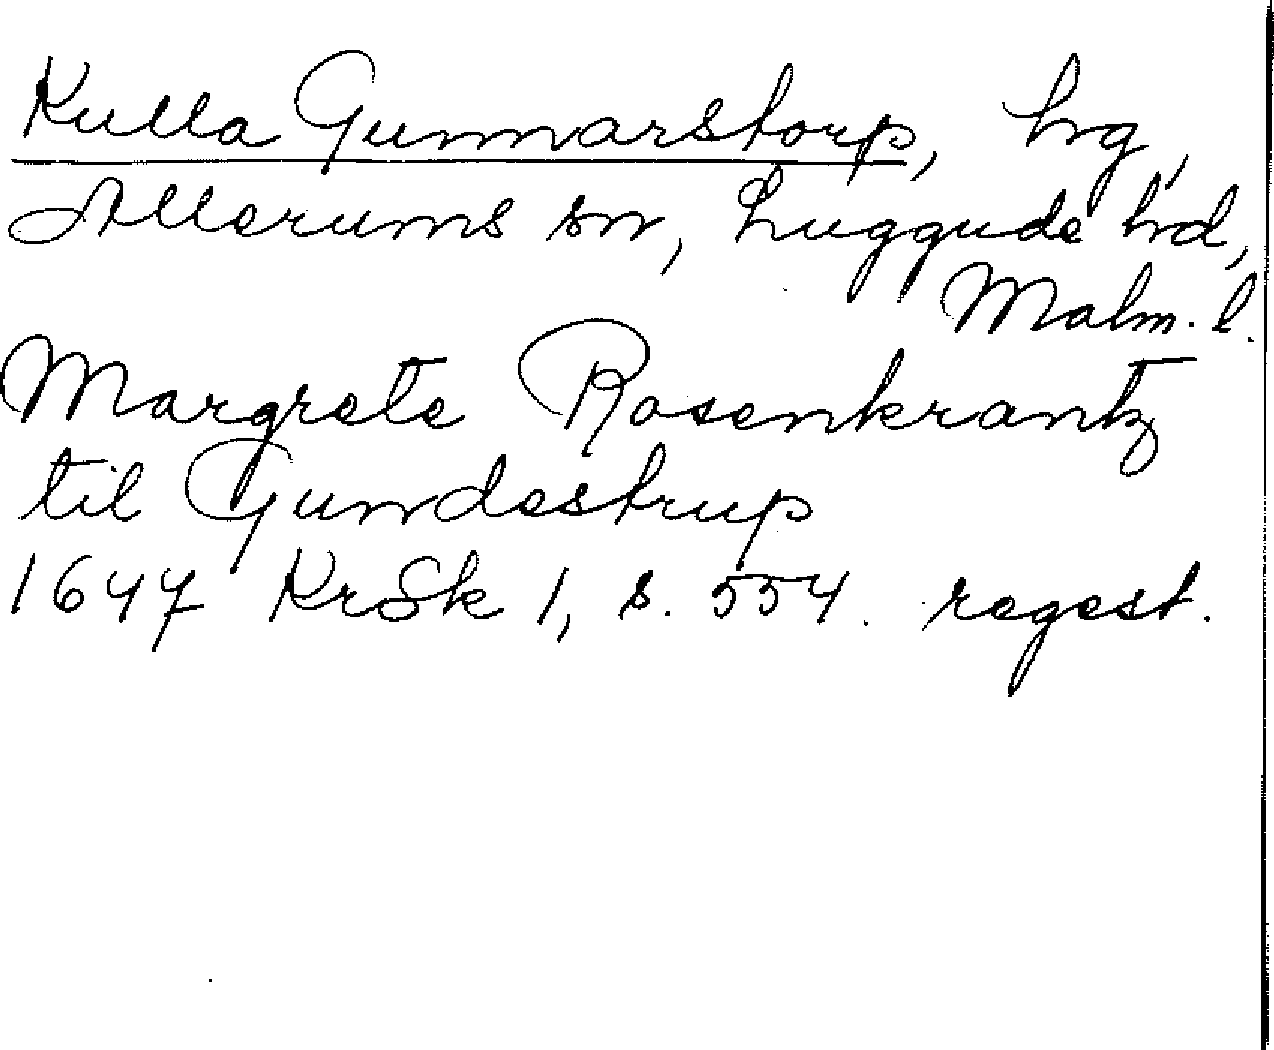 Kulla Gunnarstorp, hrg,
Allerums sn, Luggude hd,
Malm. l.
Margrete Rosenkrantz
til Gundestrup
1647 KrSk 1, s. 554. regest.